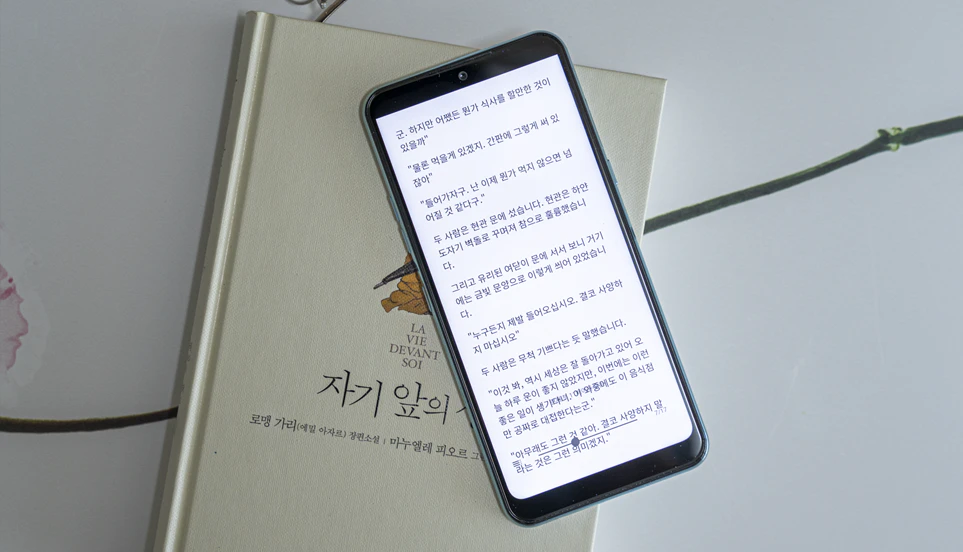 군. 하지만 어쨌든 뭔가 식사를 할만한 것이
있을까"
"물론 먹을게 있겠지. 간판에 그렇게 써 있
잖아"
"들어가자구. 난 이제 뭔가 먹지 않으면 넘
어질 것 같다구."
두 사람은 현관 문에 섰습니다. 현관은 하얀
도자기 벽돌로 꾸며져 참으로 훌륭했습니
다.
그리고 유리된 여닫이 문에 서서 보니 거기
에는 금빛 문양으로 이렇게 씌어 있었습니
다.
"누구든지 제발 들어오십시오. 결코 사양하
지 마십시오"
두 사람은 무척 기쁘다는 듯 말했습니다.
"이것 봐, 역시 세상은 잘 돌아가고 있어 오
늘 하루 운이 좋지 않았지만, 이번에는 이런
좋은 일이 생기다니. 이 와중에도 이 음식점
만 공짜로 대접한다는군."
"아무래도 그런 것 같아. 결코 사양하지 말
라는 것은 그런 의미겠지."
LA
VIE
DEVANT
SOI
자기 앞의
로맹 가리(에밀 아자르) 장편소설 | 마누엘레 피오르 그